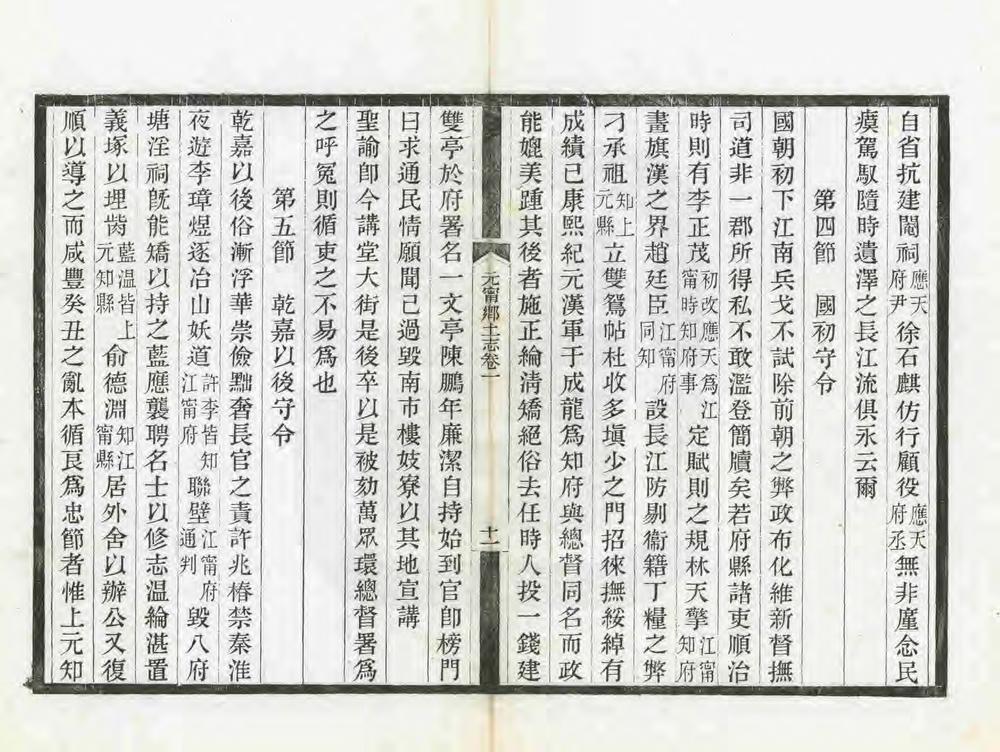 自省抗建閹祠應天府尹徐石麒仿行顧役應天府丞無非廑念民
瘼駕馭隨時遺澤之長江流俱永云爾
第四節　國初守令
國朝初下江南兵戈不試除前朝之弊政布化維新督撫
司道非一郡所得私不敢濫登簡牘矣若府縣諸吏順治
時則有李正茂初改應天爲江甯時知府事定賦則之規林天擎江甯知府
畫旗漢之界趙廷臣江甯府同知設長江防剔衞籍丁糧之弊
刁承祖知上元縣立雙鴛帖杜收多塡少之門招徠撫綏綽有
成績已康熙紀元漢軍于成龍爲知府與總督同名而政
能媲美踵其後者施正綸淸矯絕俗去任時人投一錢建
元甯鄉土志卷一
十一
雙亭於府署名一文亭陳鵬年廉潔自持始到官卽榜門
曰求通民情願聞己過毀南市樓妓寮以其地宣講
聖諭卽今講堂大街是後卒以是被劾萬眾環總督署爲
之呼冤則循吏之不易爲也
第五節　乾嘉以後守令
乾嘉以後俗漸浮華崇儉黜奢長官之責許兆椿禁秦淮
夜遊李璋煜逐冶山妖道許李皆知江甯府聯壁江甯府通判毀八府
塘淫祠旣能矯以持之藍應襲聘名士以修志温綸湛置
義塚以埋胔藍温皆上元知縣俞德淵知江甯縣居外舍以辦公又復
順以導之而咸豐癸丑之亂本循良爲忠節者惟上元知